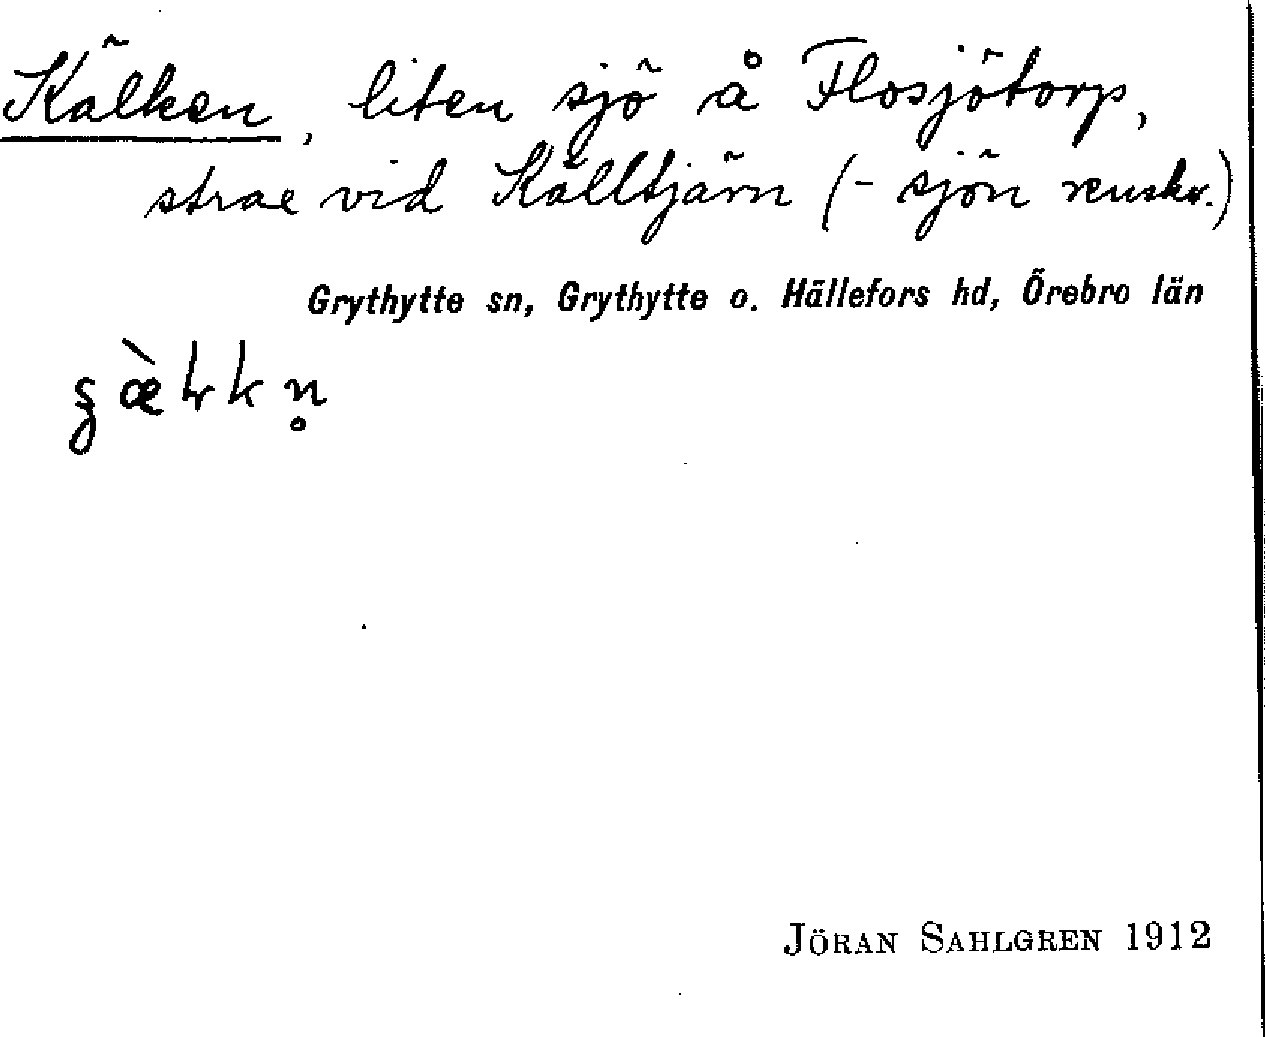 Kälken, liten sjö å Flosjötorp,
strax vid Källtjärn (- sjön renskr.)
Grythytte sn, Grythytte o. Hällefors hd, Örebro län
JÖRAN SAHLGREN 1912